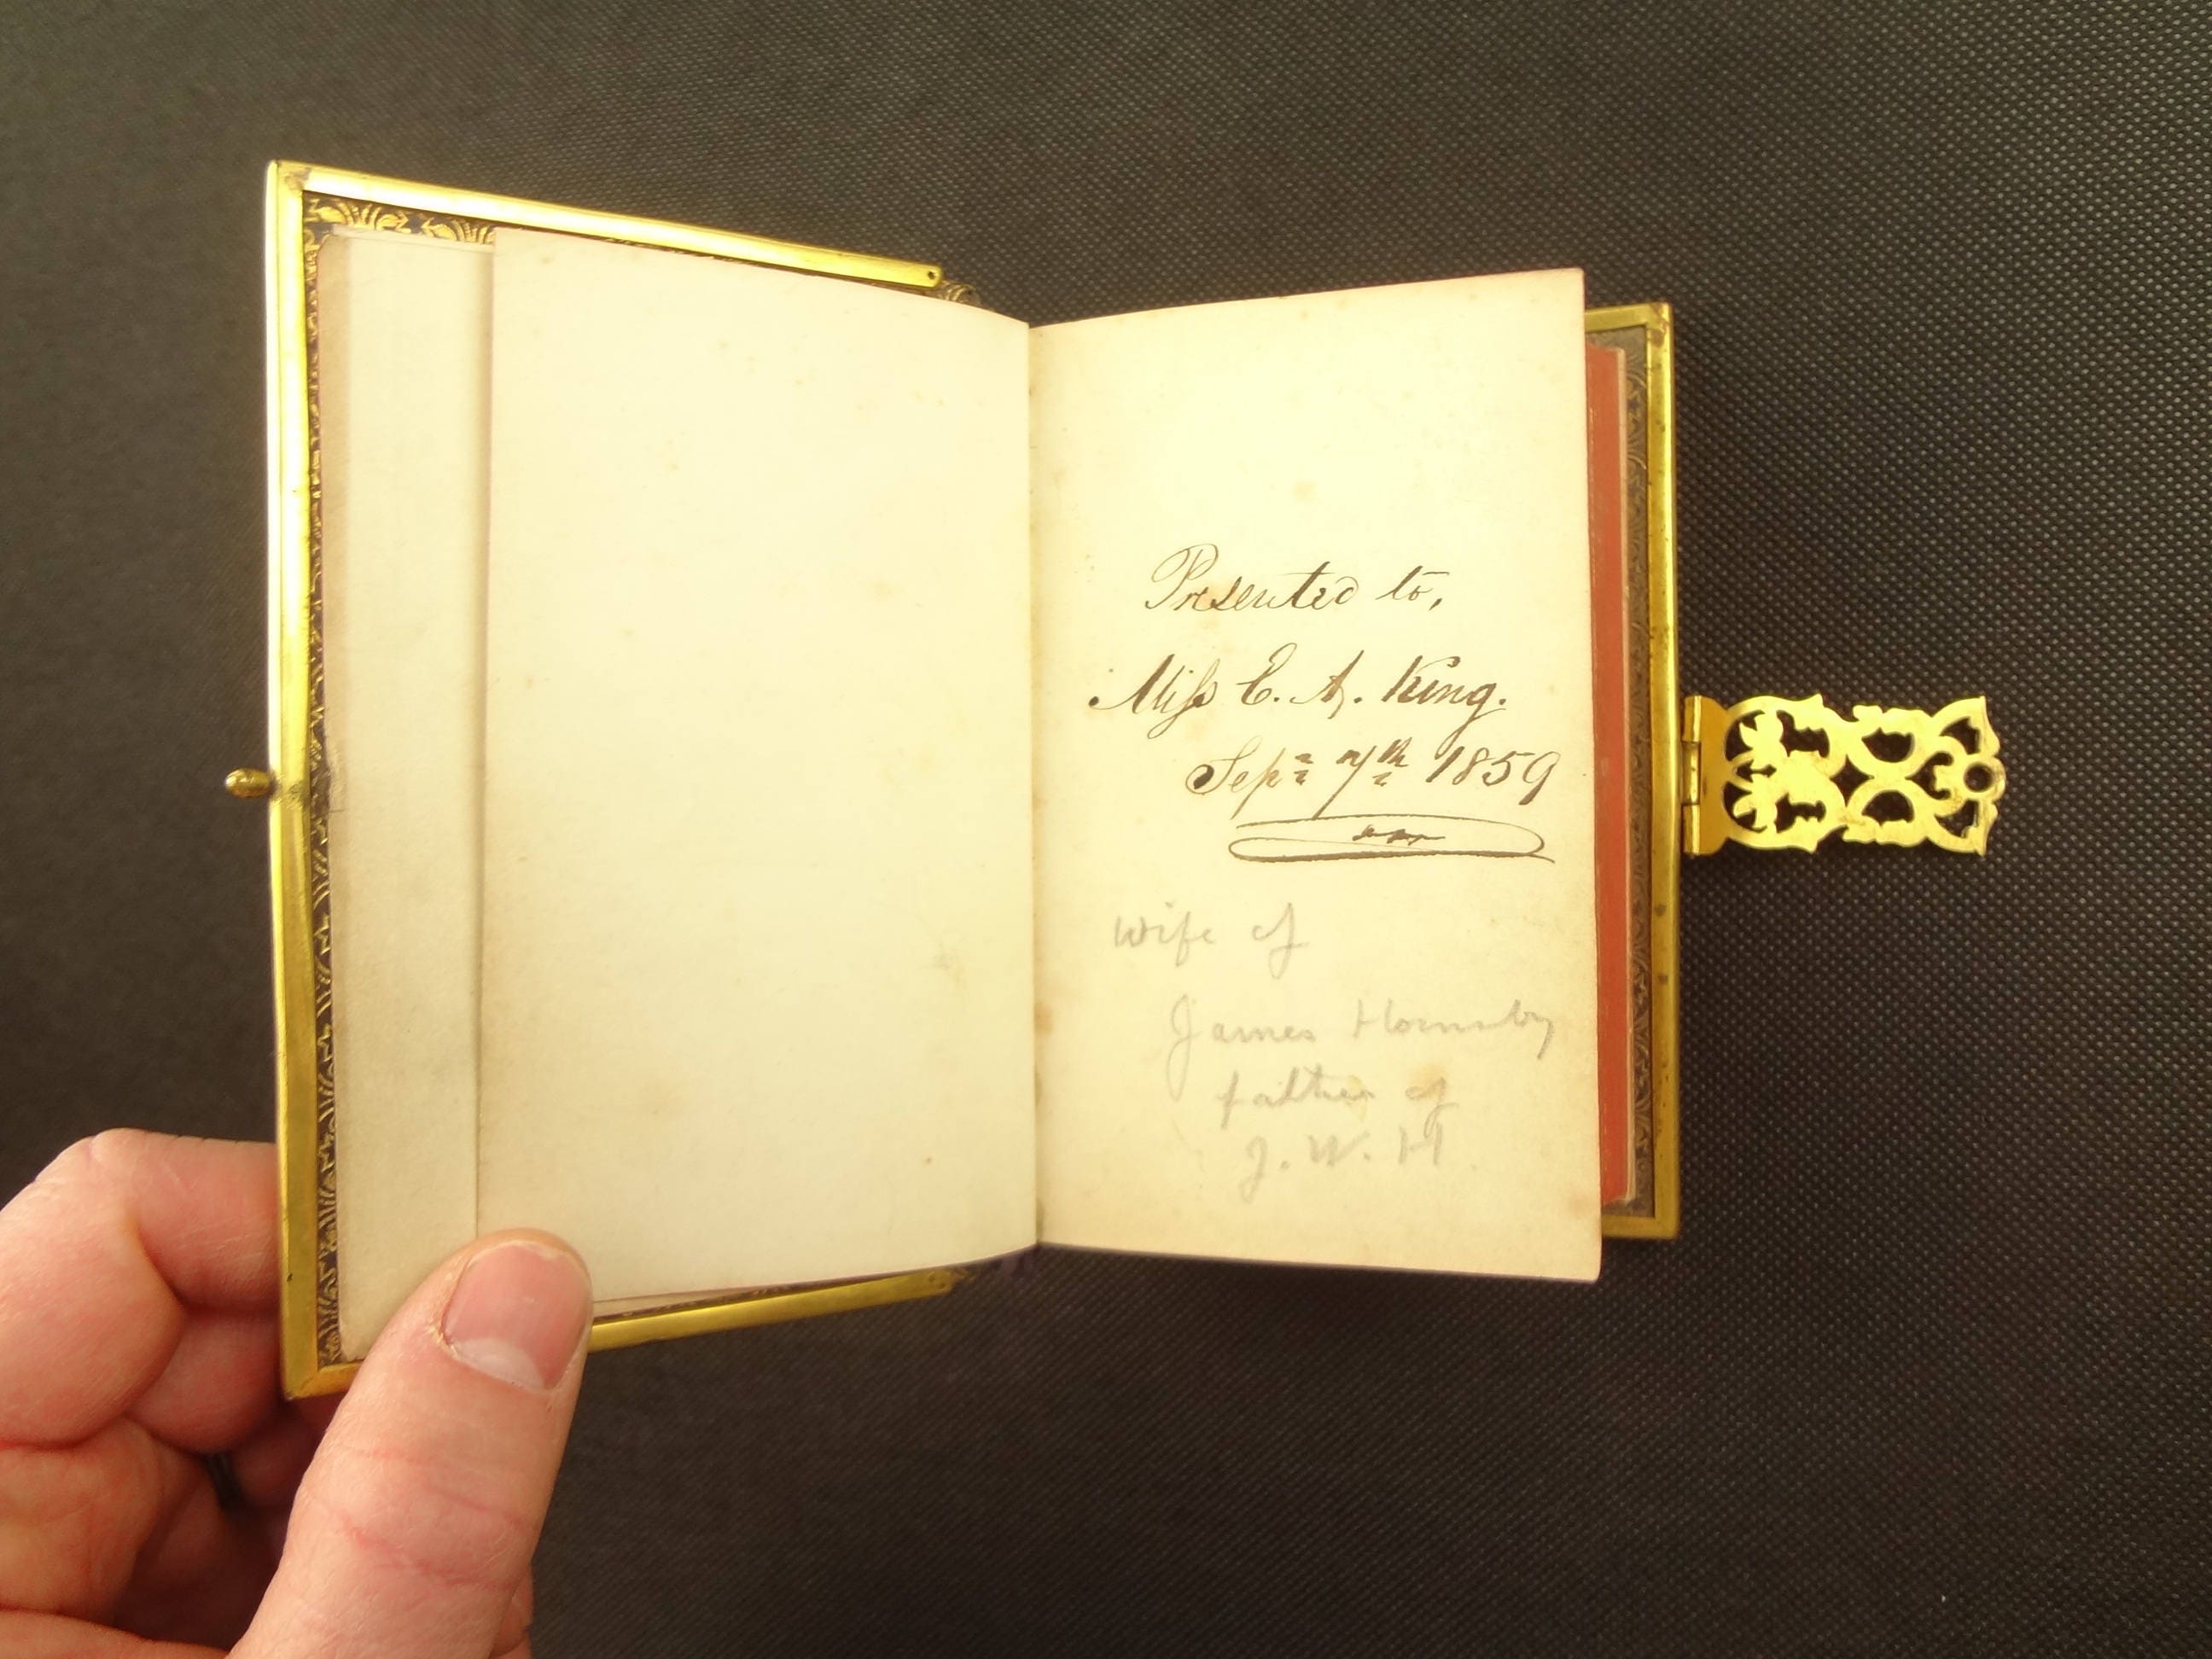 Presented to,
Miss E. A. King.
Sepr 7th 1859
Wife of
James Hornsby
father of
J. W. H.